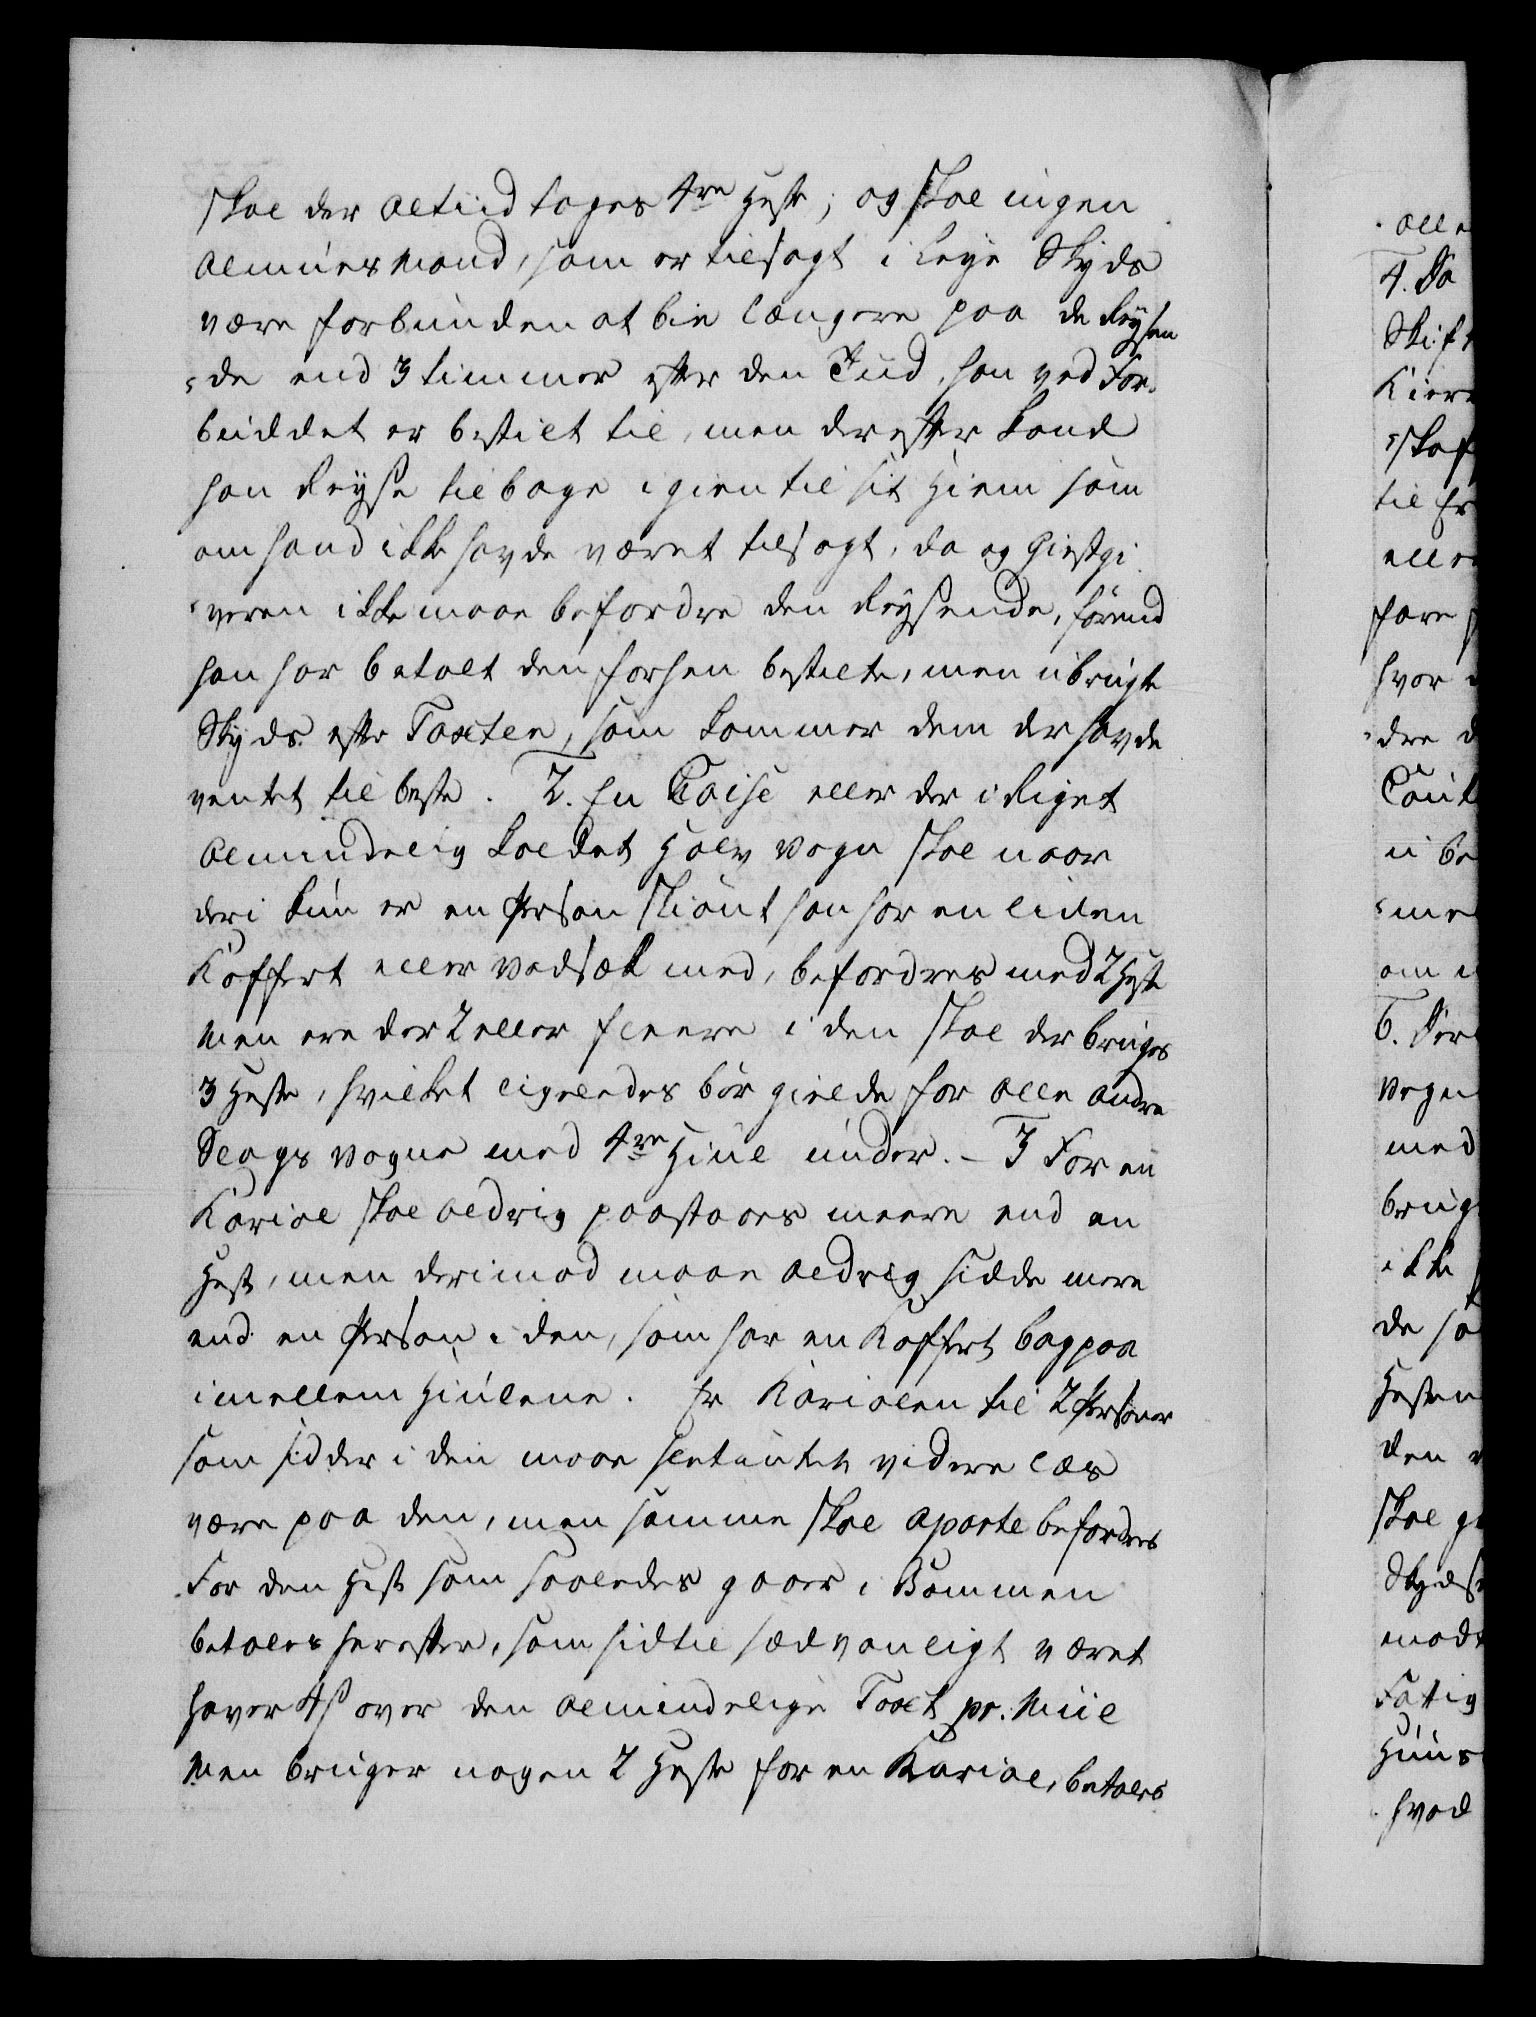 skal der altiid tages 4re Heste; og skal ingen
Almues Mand, som er tilsagt i Leye Skyds
være forbunden at bie længere paa de Reysen
de end 3 timmer efter den Tiid, han ved For-
buddet er bestilt til, men derefter kand
han Reyse tilbage igien til sit Hiem som
om hand ikke havde været tilsagt, da og Giestgi
veren ikke maae befordre den Reysende, förend
han har betalt den forhen bestilte, men ubrugte
Skyds efter Taxten, som kommer dem der havde
ventet til beste. 2. En Chaise eller der i Riget
Almindelig kaldet Halv Vogn skal naar
deri kun er en Person skiönt han har en liden
Koffert eller Vadsæk med, befordres med 2 Heste
Men ere der 2 eller fleere i den skal der bruges
3 Heste, hvilket ligeledes bör gielde for alle andre
Slags Vogne med 4re Hiul under. - 3 For en
Kariol skal aldrig paastaaes meere end en
Hest, men derimod maae aldrig sidde mere
end en Person i den, som har en Koffert bagpaa
imellem Hiulene. Er Kariolen til 2 Personer
som sidder i den maae slet intet videre læs
være paa den, men samme skal aparte befordres
For den Hest som saaledes gaaer i Bommen
betales herefter, som hidtil sædvanligt været
haver 4 s over den almindelige Taxt pr. Miil
Men bruger nogen 2 Heste for en Kariol, betales
alle
4. Da
Skift
Kiere
skaf
til Er
elle
fare
hvor
dre d
u be
me
om
6. Der
Vogn
med
brug
ikke
de sa
Hesten
den
skal g
Skyds
mod
Fattig
Huus
hvad